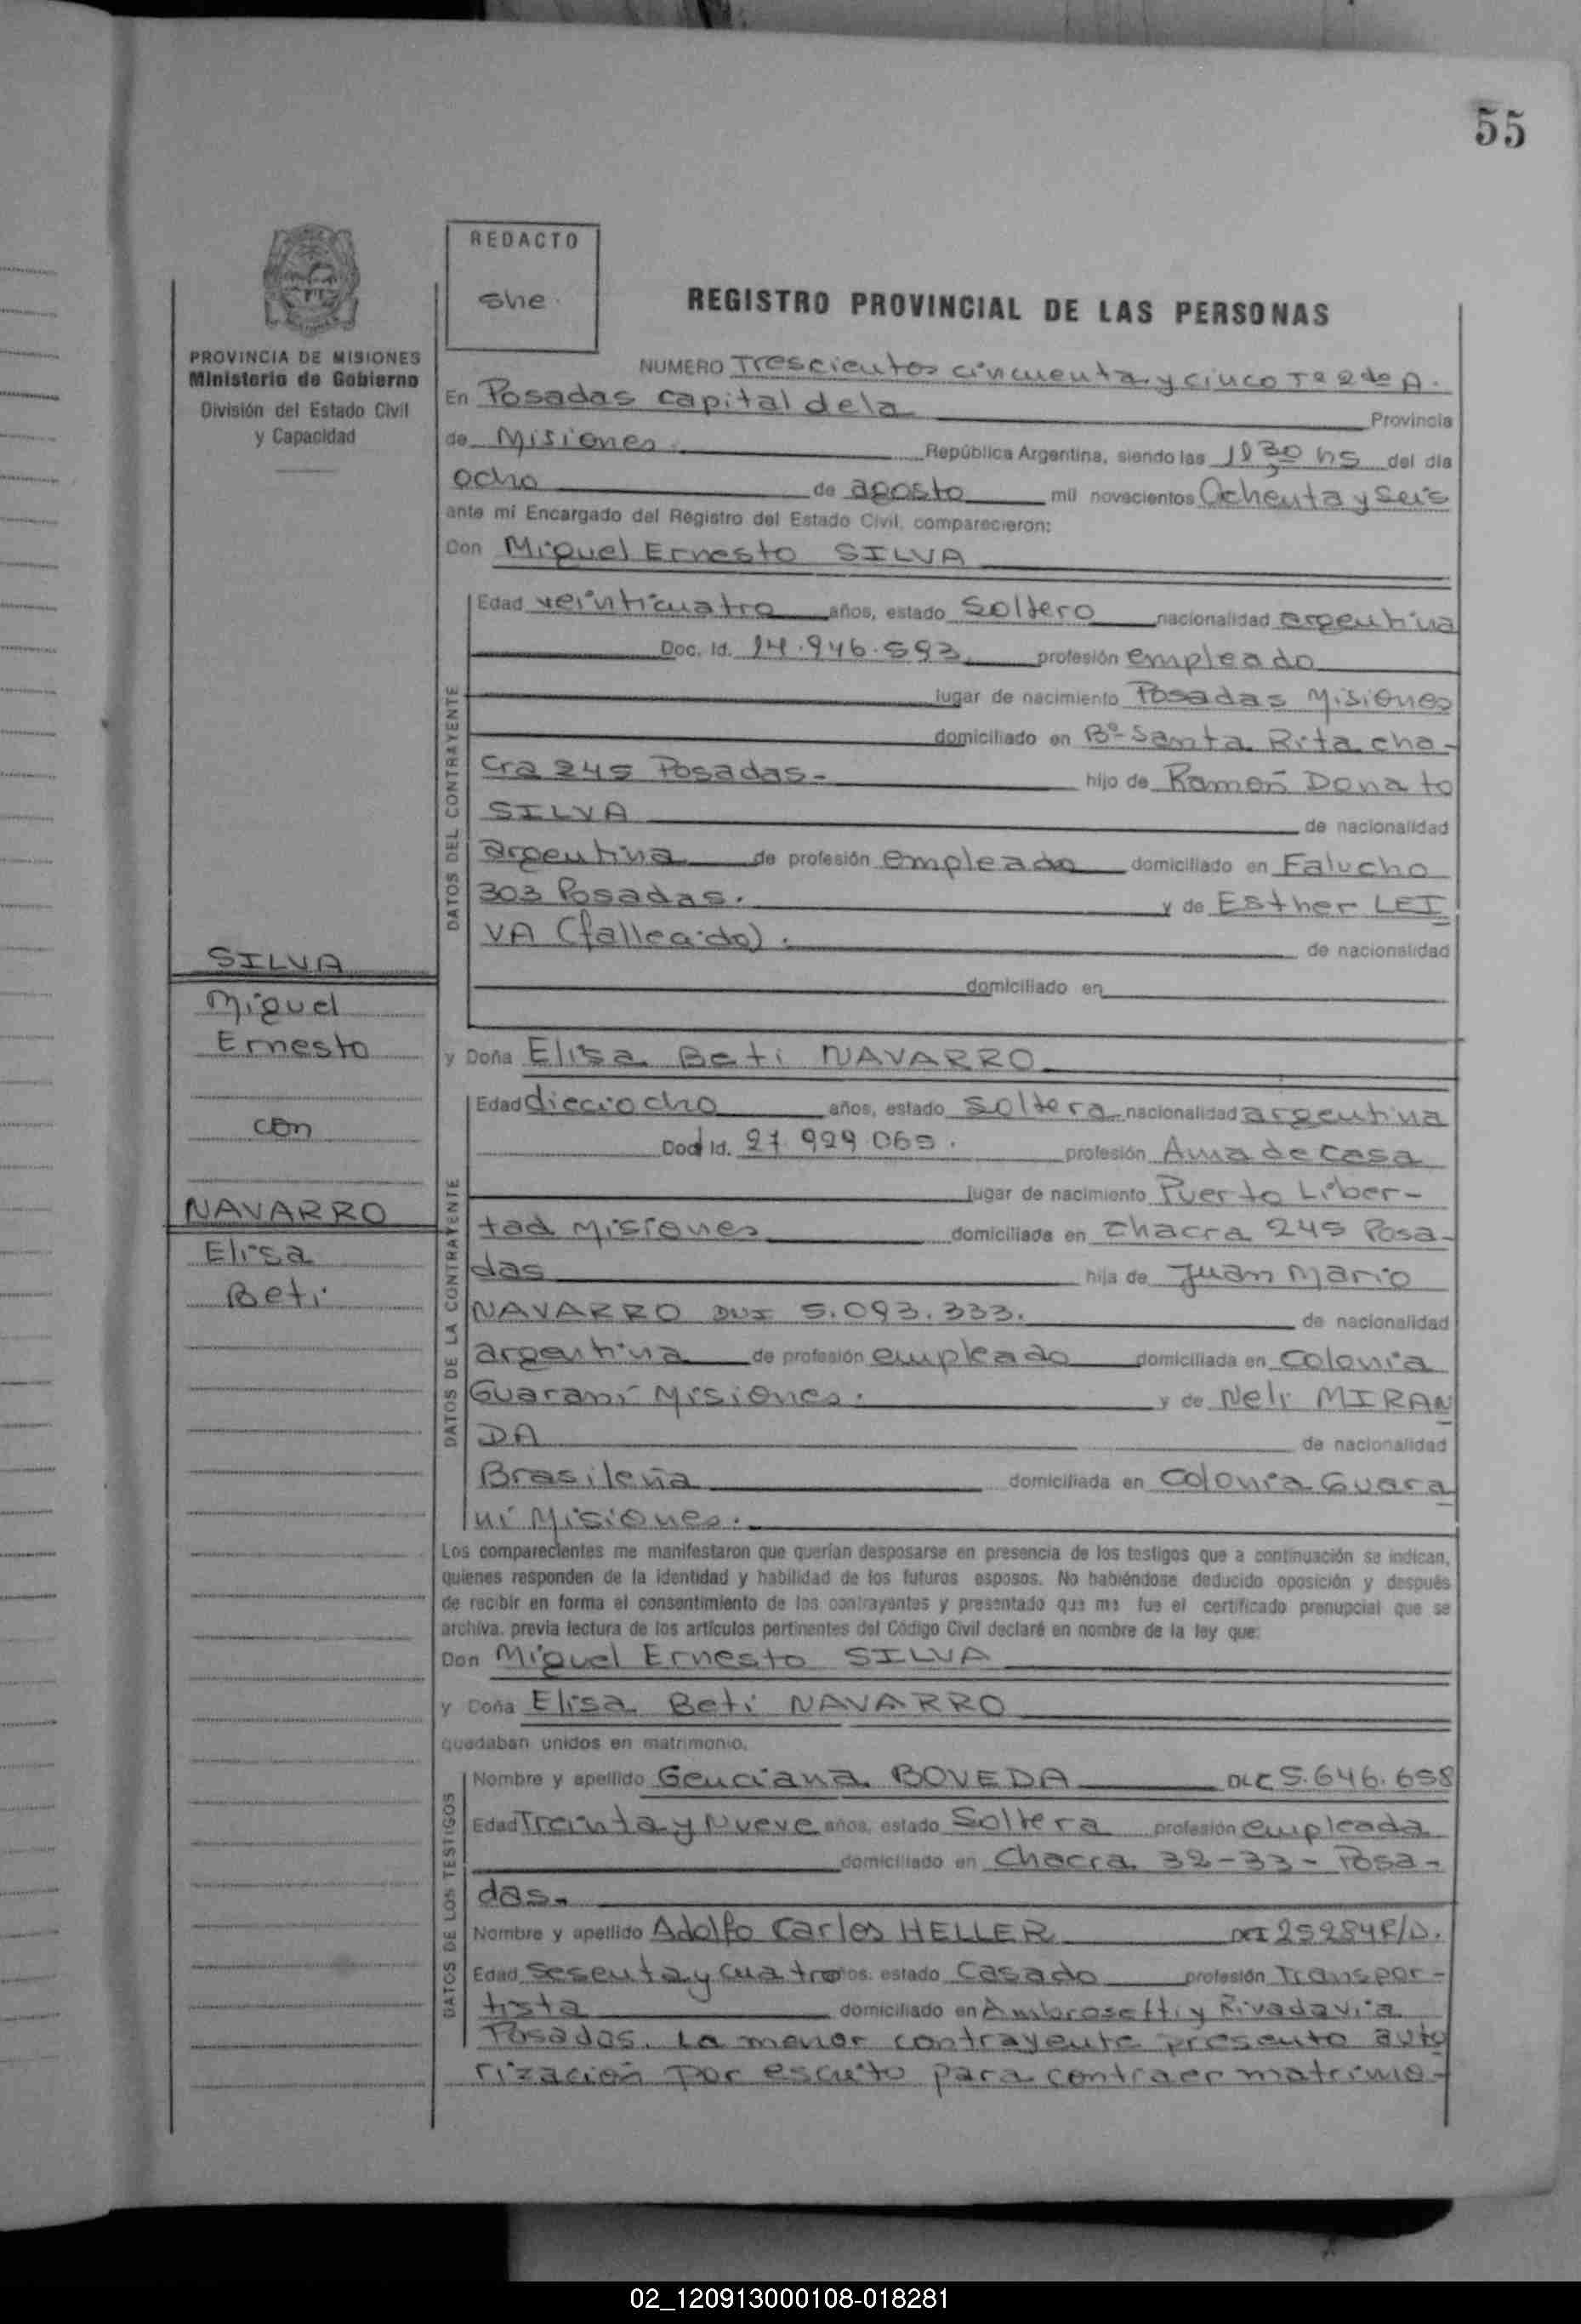 55
REDACTO
she
PROVINCIA DE MISIONES
Ministerio de Gobierno
División del Estado Civil
y Capacidad
SILVA
Miguel
Ernesto
con
NAVARRO
Elisa
Beti
REGISTRO PROVINCIAL DE LAS PERSONAS
NUMERO Trescientos cincuenta y cinco Tº 2do A.
En Posadas capital de la Provincia
de Misiones República Argentina, siendo las hs del día
ocho de agosto mil novecientos Ochenta y seis
ante mi Encargado del Registro del Estado Civil, comparecieron:
Don Miguel Ernesto SILVA
DATOS DEL CONTRAYENTE
Edad veinticuatro años, estado Soltero nacionalidad argentina
Doc. Id. 14.946.593 profesión empleado
lugar de nacimiento Posadas Misiones
domiciliado en Bº Santa Rita cha-
cra 245 Posadas- hijo de Ramón Donato
SILVA de nacionalidad
argentina de profesión empleado domiciliado en Falucho
303 Posadas. y de Esther LEI
VA (falleado). de nacionalidad
domiciliado en
y Doña Elisa Beti NAVARRO
DATOS DE LA CONTRAYENTE
Edad dieciocho años, estado Soltera nacionalidad argentina
Doc Id. profesión Ama de casa
lugar de nacimiento Puerto Liber-
tad Misiones domiciliada en chacra 245 Posa-
das hija de Juan Mario
NAVARRO DNI 5.093.333. de nacionalidad
argentina de profesión empleado domiciliada en Colonia
Guaraní Misiones. y de Neli MIRAN
DA de nacionalidad
Brasileña domiciliada en Colonia Guara
ní Misiones.
Los comparecientes me manifestaron que querían desposarse en presencia de los testigos que a continuación se indican,
quienes responden de la identidad y habilidad de los futuros esposos. No habiéndose deducido oposición y después
de recibir en forma el consentimiento de los contrayentes y presentado que me fue el certificado prenupcial que se
archiva, previa lectura de los artículos pertinentes del Código Civil declaré en nombre de la ley que:
Don Miguel Ernesto SILVA
y Doña Elisa Beti NAVARRO
quedaban unidos en matrimonio.
DATOS DE LOS TESTIGOS
Nombre y apellido Genciana BOVEDA DLC 5.646.658
Edad Treinta y Nueve años, estado Soltera profesión empleada
domiciliado en Chacra 32-33- Posa-
das.
Nombre y apellido Adolfo Carlos HELLER 25284R/D.
Edad Sesenta y cuatro años, estado Casado profesión Transpor-
tista domiciliado en Ambrosetti y Rivadavia
Posadas. La menor contrayente presento auto
rización por escrito para contraer matrimo-
02_120913000108-018281